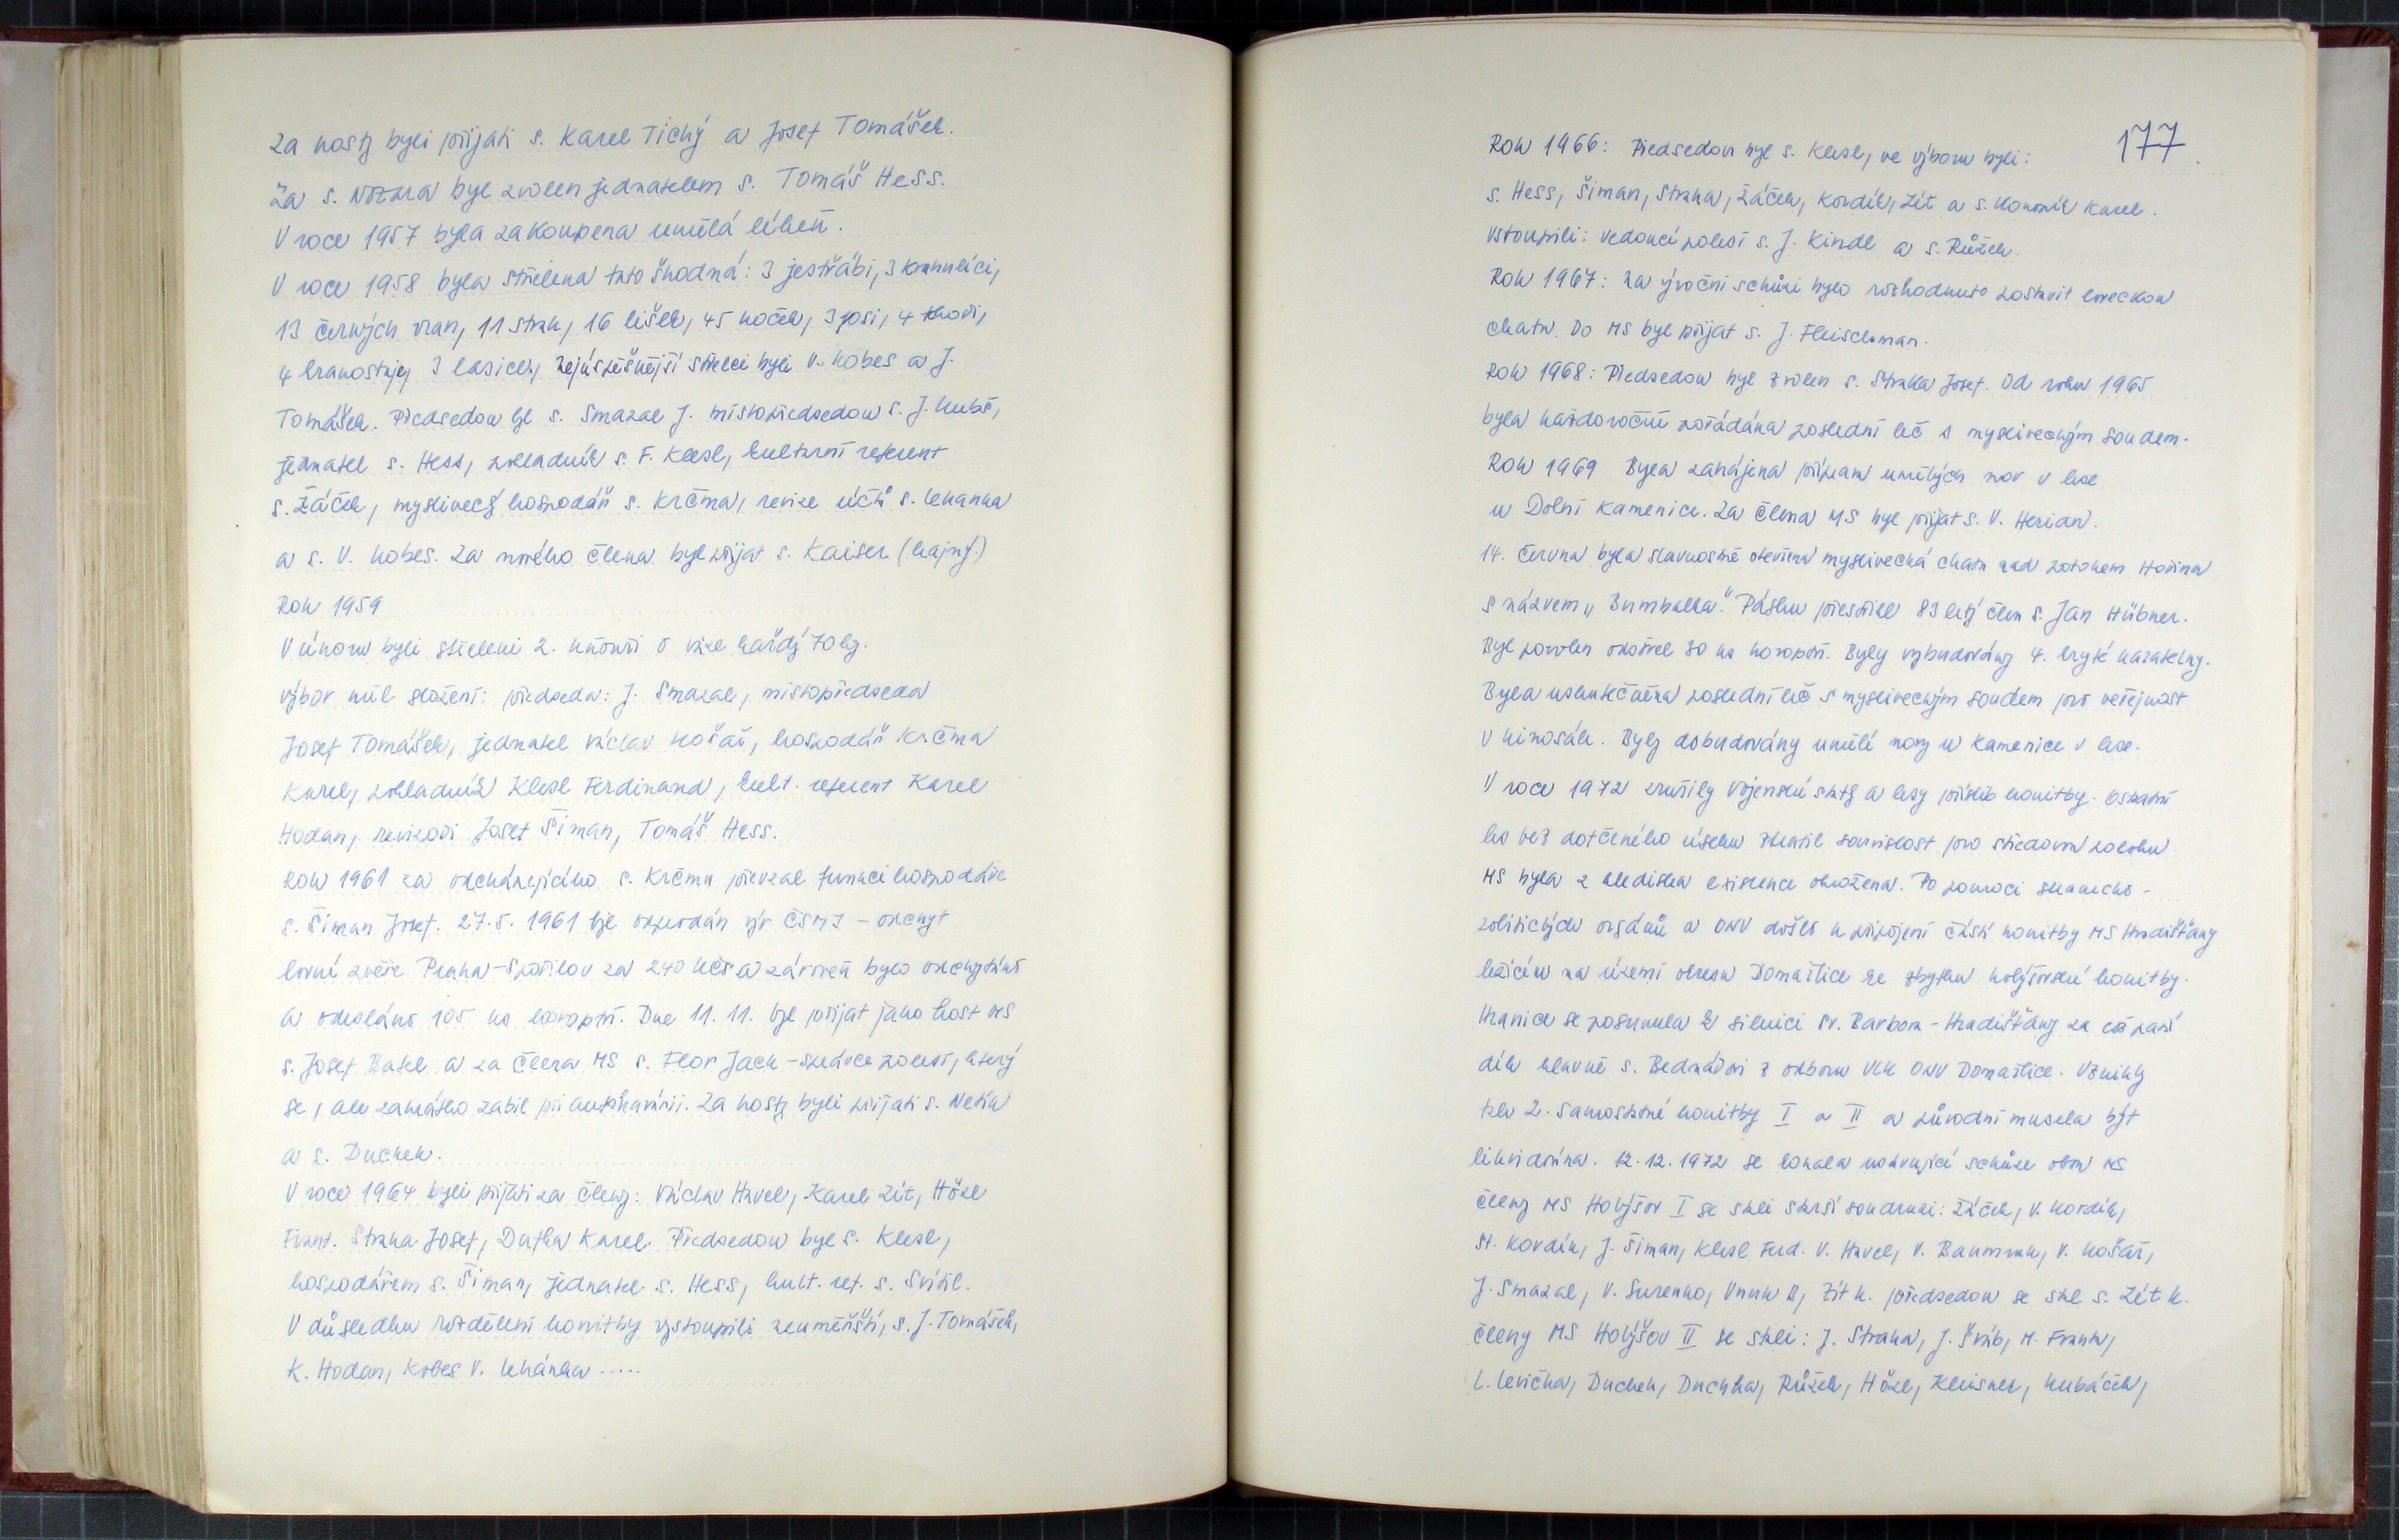 Za hosty byli přijati s. Karel Tichý a Josef Tomášek.
Za s. byl zvolen jednatelem s. Tomáš Hess.
V roce 1957 byla zakoupena umělá líheň.
V roce 1958 byla střelena tato škodná: 3 jestřábi, 3 krahulíci,
13 černých vran, 11 strak, 16 lišek, 45 koček, 3 psi, 4 tchoři,
4 hranostaje, 3 lasice, nejúspěšnější střelci byli V. Kobes a J.
Tomášek. Předsedou byl s. Smazal J. místopředsedou s. J. Kubš,
jednatel s. Hess, pokladník s. F. Klesl, kulturní referent
s. Žáček, myslivecký hospodář s. Krčma, revize účtů s. Lehanka
a s. V. Kobes. Za nového člena byl přijat s. Kaiser (hajný.)
Rok 1959
V únoru byli střeleni 2. kňouři o váze každý 70 kg.
výbor měl složení: předseda: J. Smazal, místopředseda
Josef Tomášek, jednatel Václav Košař, hospodář Krčma
Karel, pokladník Klesl Ferdinand, kult. referent Karel
Hodan, revizoři Josef Šiman, Tomáš Hess.
Rok 1961 za odcházejícího s. Krčmu převzal funkci hospodáře
s. Šiman Josef. 27.5. 1961 byl odprodán výr ČSMJ - odchyt
lovné zvěře Praha-Spořilov za 240 Kčs a zároveň bylo odchytáno
a odesláno 105 ks koroptví. Dne 11. 11. byl přijat jako host MS
s. Josef a za člena MS s. Flor Jach - správce polesí, který
se, ale zakrátko zabil při autohavárii. Za hosty byli přijati s. Neťuk
a s. Duchek.
V roce 1964 byli přijati za členy: Václav Havel, Karel Zít, Hözl
Frant. Straka Josef, Duffka Karel. Předsedou byl s. Klesl,
hospodářem s. Šiman, jednatel s. Hess, kult. ref. s. Svítil.
V důsledku rozdělení honitby vystoupili zeměňští, s. J. Tomášek,
K. Hodan, Kobes V. Lehánka .....
177
Rok 1966: Předsedou byl s. Klesl, ve výboru byli:
s. Hess, Šiman, Straka, Žáček, Kordík, Zít a s. Karel.
vstoupili: vedoucí polesí s. J. Kindl a s. Růžek.
Rok 1967: na výroční schůzi bylo rozhodnuto postavit loveckou
chatu. Do MS byl přijat s. J. Fleischman.
Rok 1968: Předsedou byl zvolen s. Straka Josef. Od roku 1965
byla každoročně pořádána poslední leč s mysliveckým soudem.
Rok 1969 Byla zahájena příprava umělých nor v lese
u Dolní Kamenice. Za člena MS byl přijat s. V. Herian.
14. června byla slavnostně otevřena myslivecká chata nad potokem Hořina
s názvem „Bumbalka." Pásku přestřihl 83 letý člen s. Jan Hübner.
Byl povolen odstřel 80 ks koroptví. Byly vybudovány 4. kryté kazatelny.
Byla uskutečněna poslední leč s mysliveckým soudem pro veřejnost
v kinosále. Byly dobudovány umělé nory u Kamenice v lese.
V roce 1972 zrušily Vojenské statky a lesy příslib honitby. Ostatní
ho bez dotčeného úseku ztratil souvislost pro středovou polohu
MS byla z hlediska existence ohrožena. Po pomoci stranicko-
politických orgánů a ONV došlo k připojení části honitby MS Hradišťany
ležících na území okresu Domažlice ke zbytku holýšovské honitby.
Hranice se posunula k silnici Sv. Barbora - Hradišťany za což patří
dík hlavně s. Bednářovi z odboru VLH ONV Domažlice. Vznikly
tak 2. samostatné honitby I a II a původní musela být
likvidována. 12. 12. 1972 se konala ustavující schůze obou MS
členy MS Holýšov I se stali starší soudruzi: Žáček, V. Kordík,
St. Kordík, J. Šiman, Klesl Ferd. V. Havel, V. Baumruk, V. Košař,
J. Smazal, V. Surenko, Vnuk B, Zít K. předsedou se stal s. Zít K.
členy MS Holýšov II se stali: J. Straka, J. Šváb, M. Frank,
L. Levička, Duchek, Duchka, Růžek, Hözl, Kleisner, Kubáček,